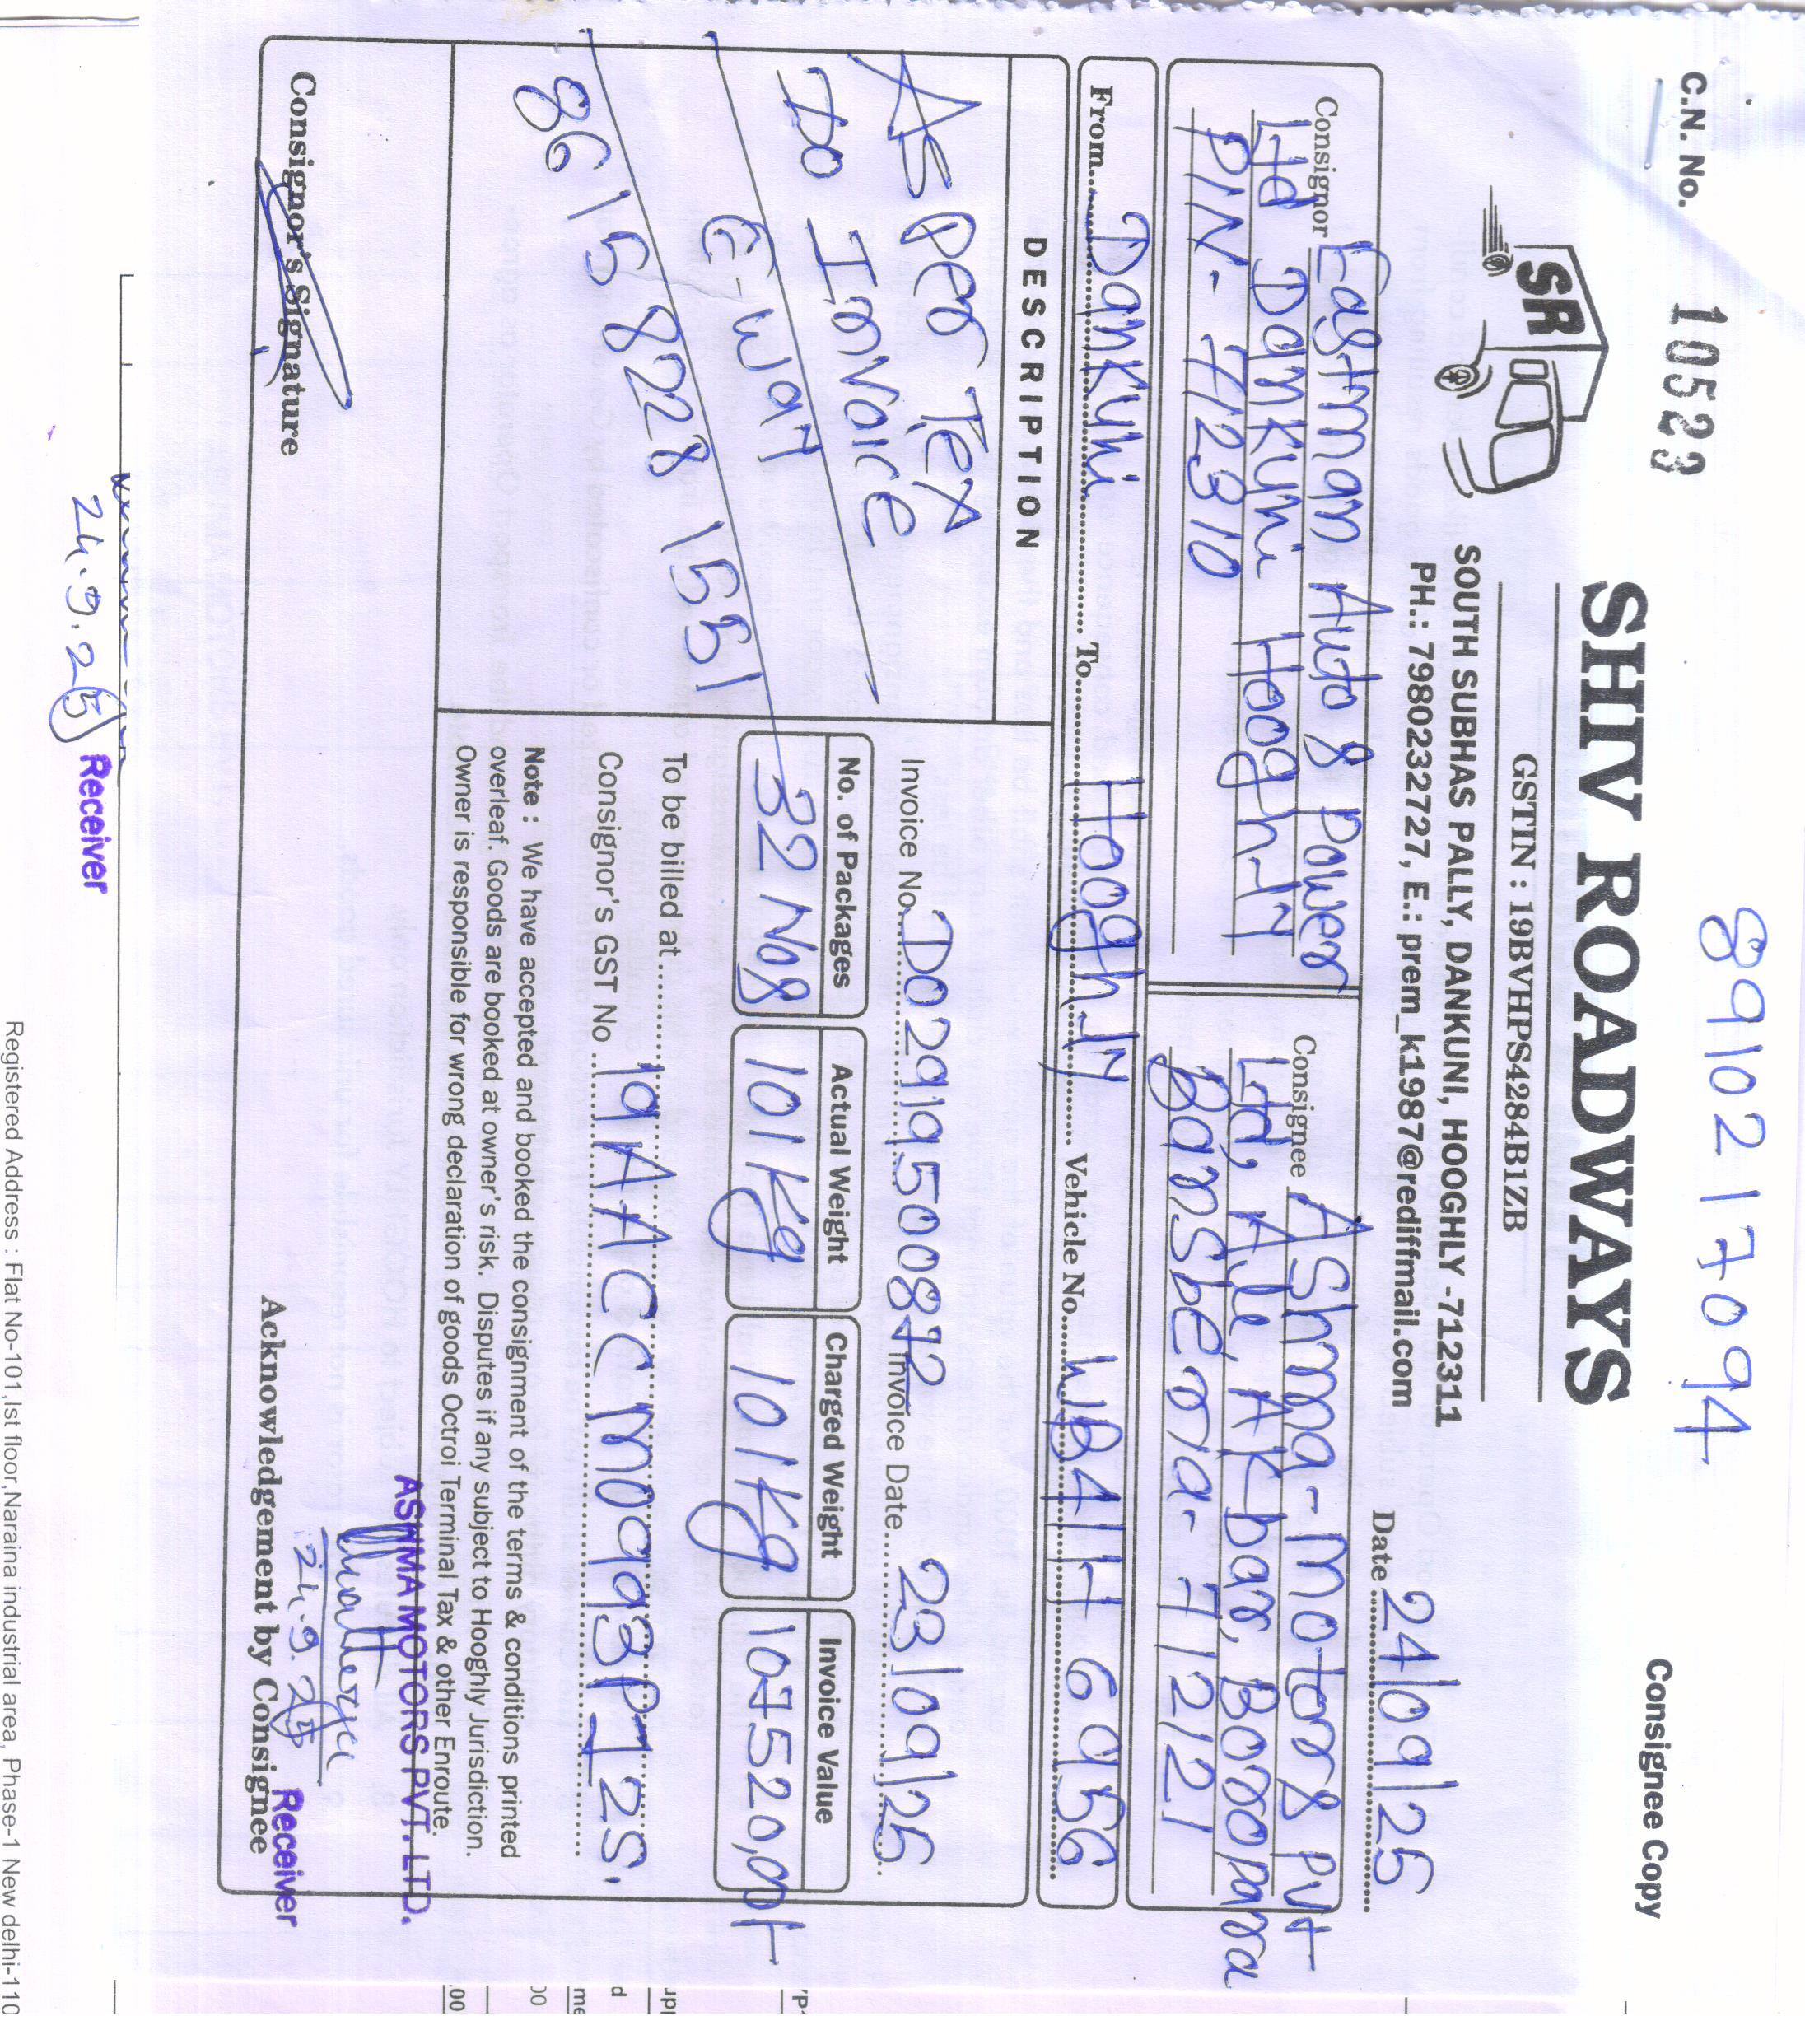 8910217094
C.N. No. 10523
Consignee Copy
SR
SHIV ROADWAYS
GSTIN : 19BVHPS4284B1ZB
SOUTH SUBHAS PALLY, DANKUNI, HOOGHLY -712311
PH.: 7980232727, E.: prem_k1987@rediffmail.com
Date 24/09/25
Consignor Eastman Auto & Power
Ltd Dankuni Hooghly
PIN- 712310
Consignee Ashma-Motors Pvt
Ltd, Ale AKbar, Boropara
Bansberia- 712121
From Dankuni To Hooghly Vehicle No. WB41H 6956
DESCRIPTION
As Per Tex
Do Invoice
E-way
8615 8228 1551
Invoice No. D02919500872 Invoice Date 23/09/25
No. of Packages
32 Nos
Actual Weight
101 Kg
Charged Weight
101 Kg
Invoice Value
107520,00/-
To be billed at
Consignor's GST No 19AACCM0993P1ZS,
Note : We have accepted and booked the consignment of the terms & conditions printed
overleaf. Goods are booked at owner's risk. Disputes if any subject to Hooghly Jurisdiction.
Owner is responsible for wrong declaration of goods Octroi Terminal Tax & other Enroute.
ASIMA MOTORS PVT. LTD.
24.9.25
Receiver
Consignor's Signature
Acknowledgement by Consignee
24.9.25
Receiver
Registered Address : Flat No-101,Ist floor,Naraina industrial area, Phase-1 New delhi-110